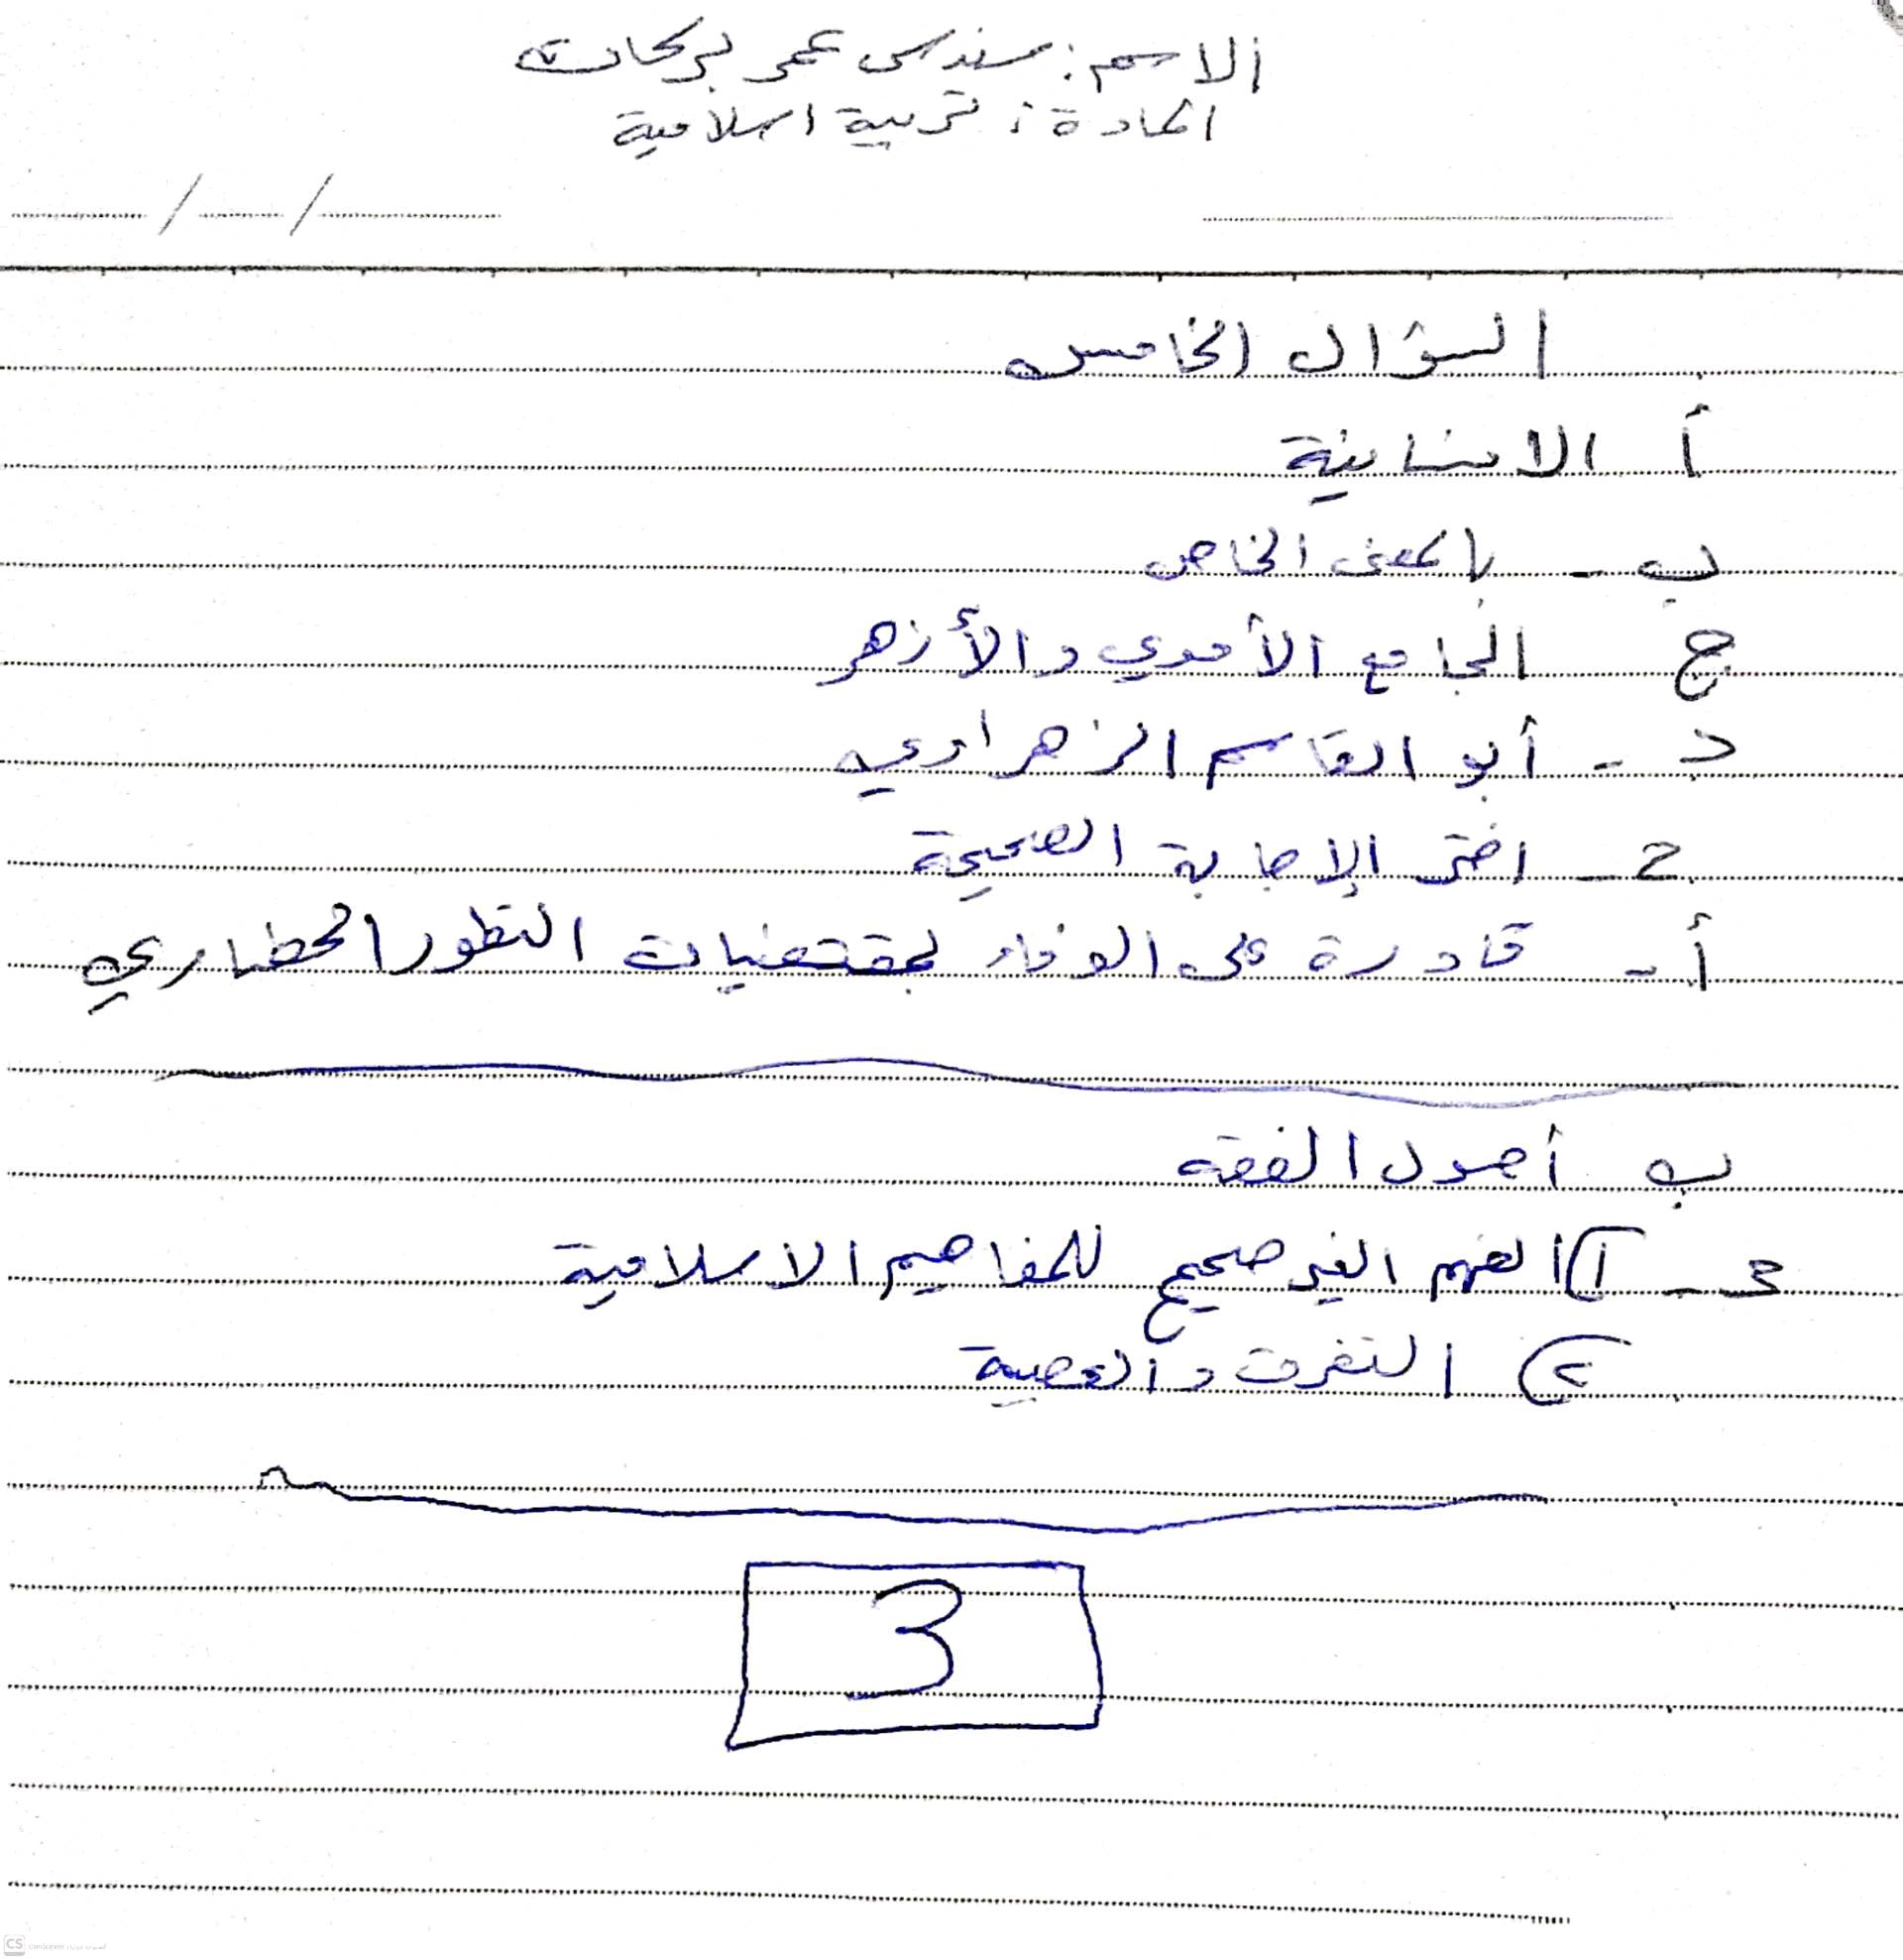 الاسم: سندس عمر بركات
المادة: تربية اسلامية
/ /
السؤال الخامس
أ الانسانية
ب - بالمعنى الخاص
ج الجامع الأموي والأزهر
د - أبو القاسم الزهراوي
2 - اختر الإجابة الصحيحة
أ - قادرة على الوفاء بمقتضيات التطور الحضاري
ب أصول الفقه
3 - 1) الفهم الغير صحيح للمفاهيم الاسلامية
2) التفرق والعصبية
3
CS CamScanner